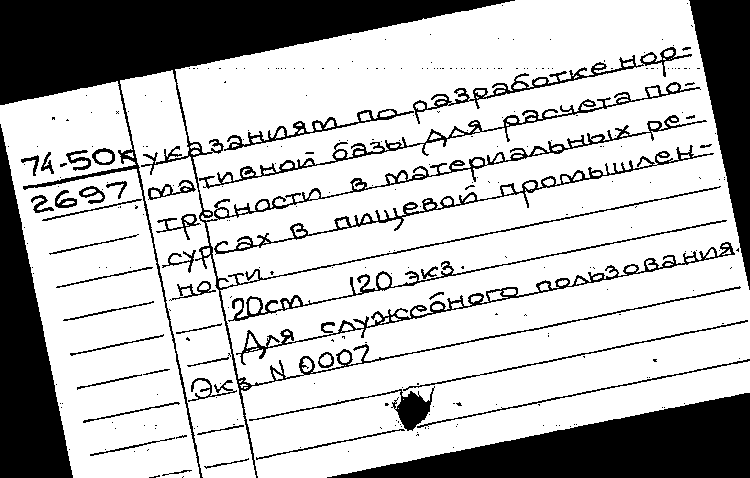 74-50к указаниям по разработке нор-
2697 мативной базы для расчета по-
требности в материальных ре-
сурсах в пищевой промышлен-
ности.
20ст. 120 экз.
Для служебного пользования.
Экз. N 0007.